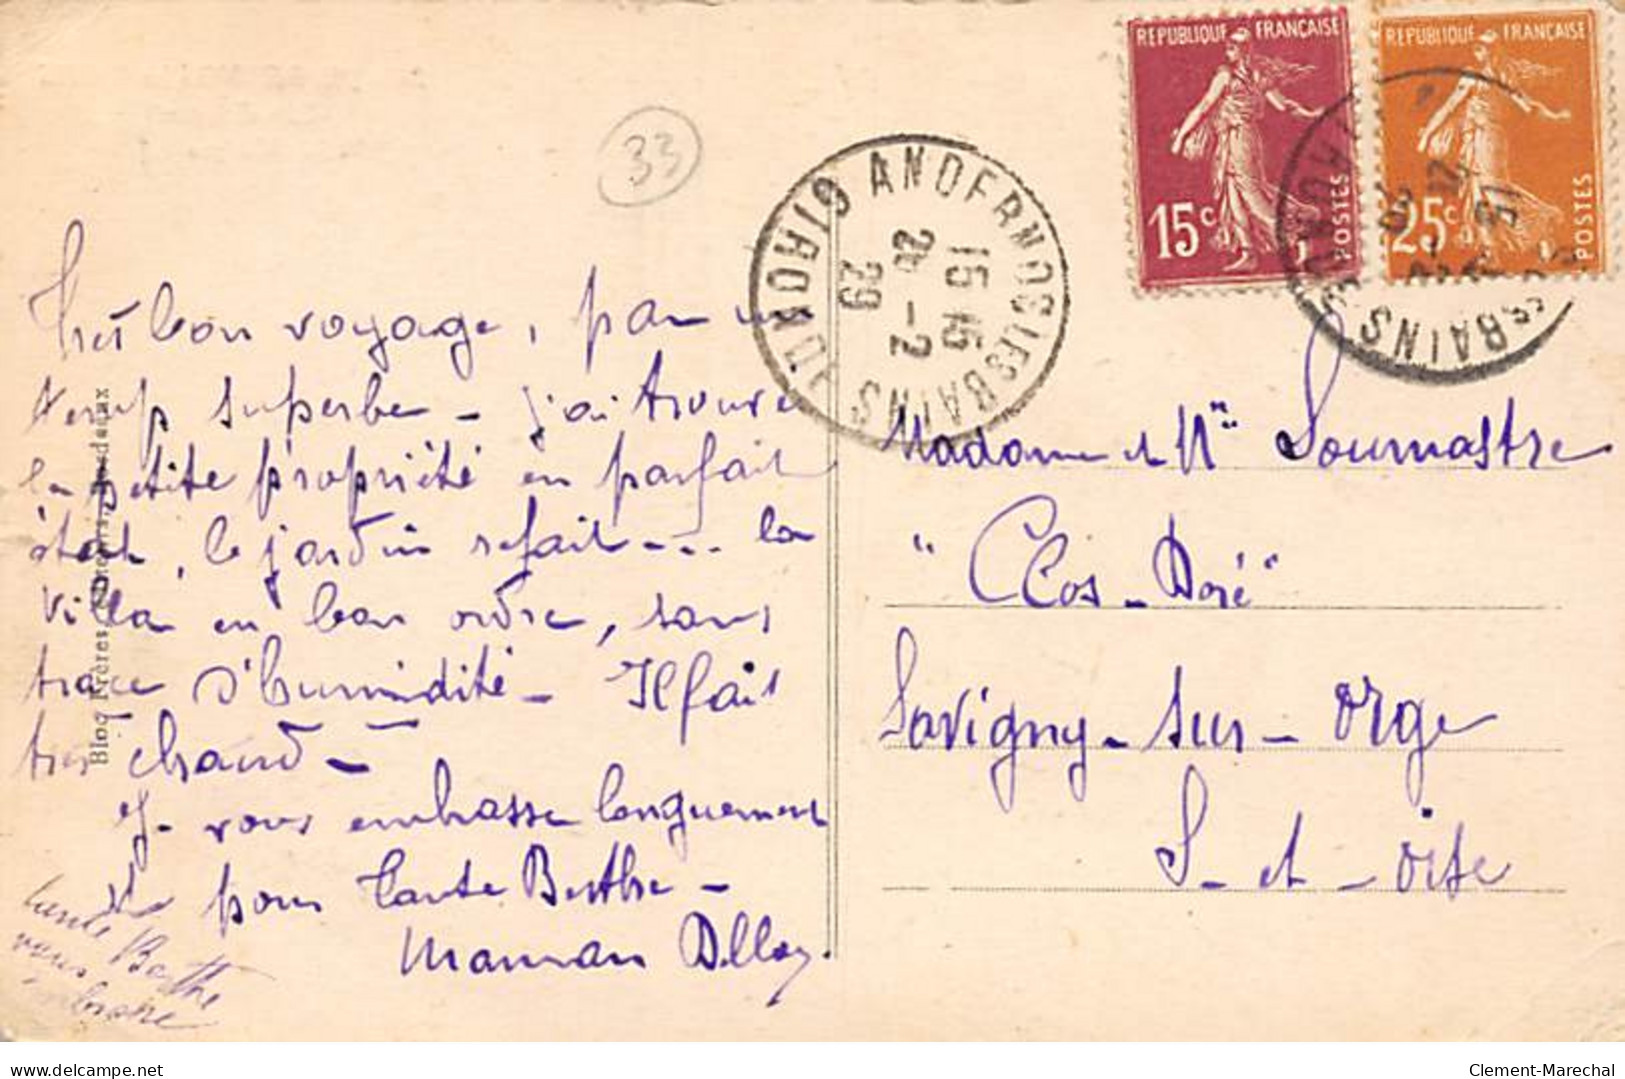 33
Très bon voyage, par un
temps superbe - j'ai trouvé
la petite propriété en parfait
état, le jardin refait --- la
villa en bon ordre, sans
trace d'humidité - Il fait
très chaud -
Je vous embrasse longuement
pour tante Berthe -
Maman
tante Berthe
vous
embrasse
Bloc Frères, Bordeaux
ANDERNOS LES BAINS
GIRONDE
15 15
26 -2
29
REPUBLIQUE FRANÇAISE
15c
POSTES
REPUBLIQUE FRANÇAISE
25c
POSTES
Madame et Mlle Soumastre
"Clos-Doré"
Savigny-sur-Orge
S-et-Oise
delcampe.net
Clement-Marechal